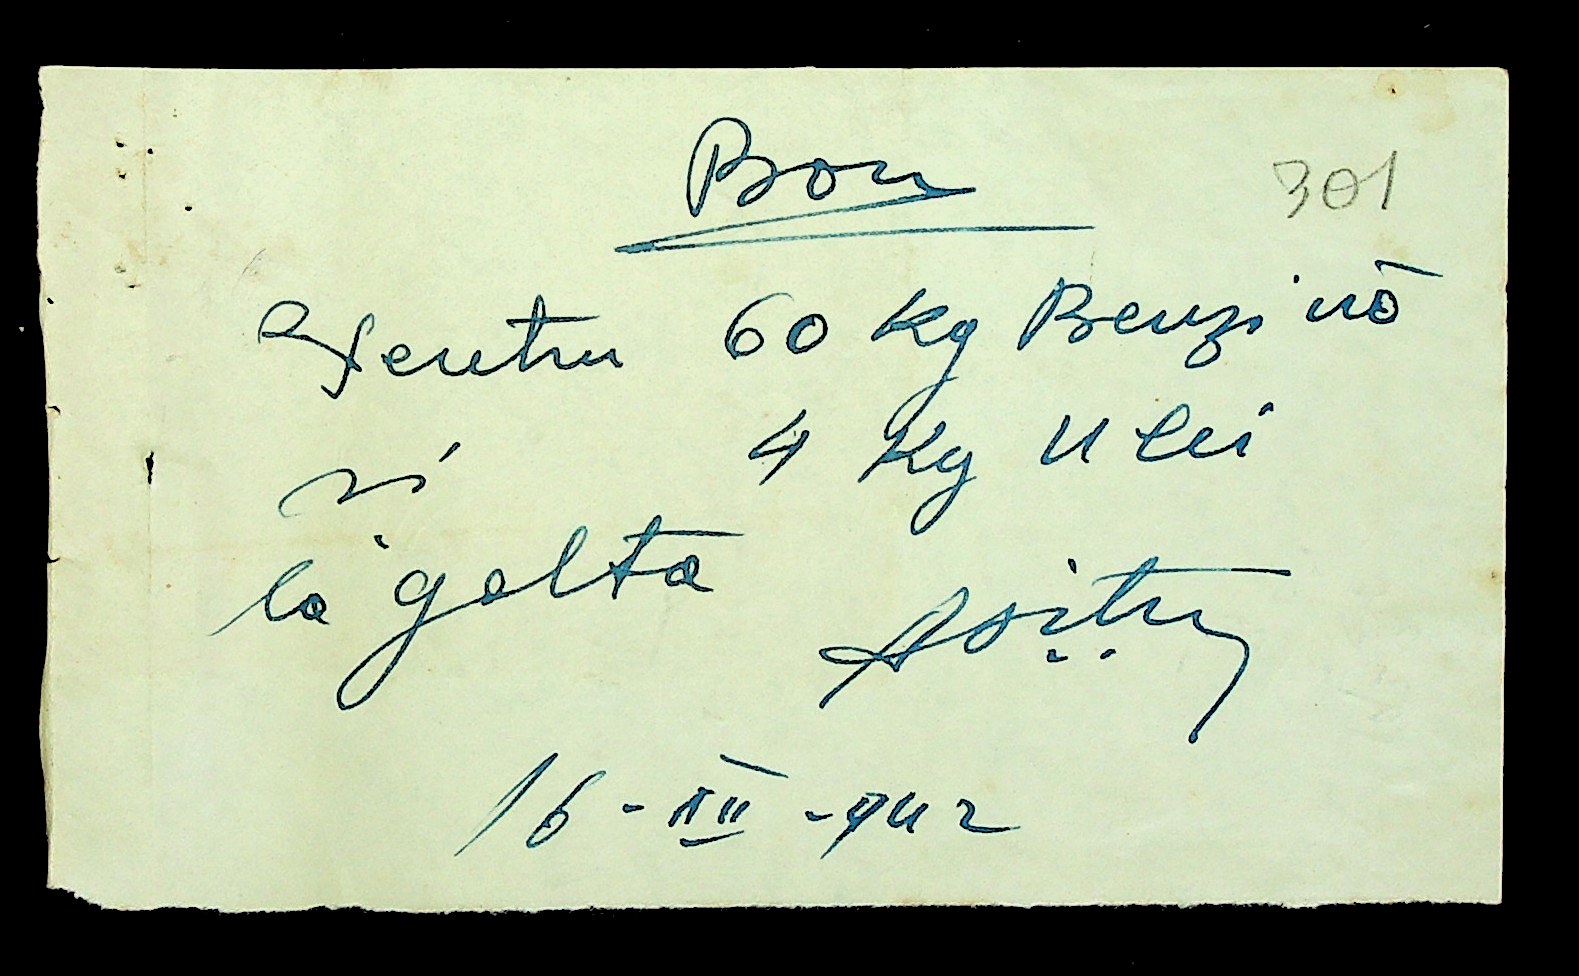 Bon
301
Pentru 60 Kg Benzină
și 4 Kg Ulei
la Golta
16-XII-942